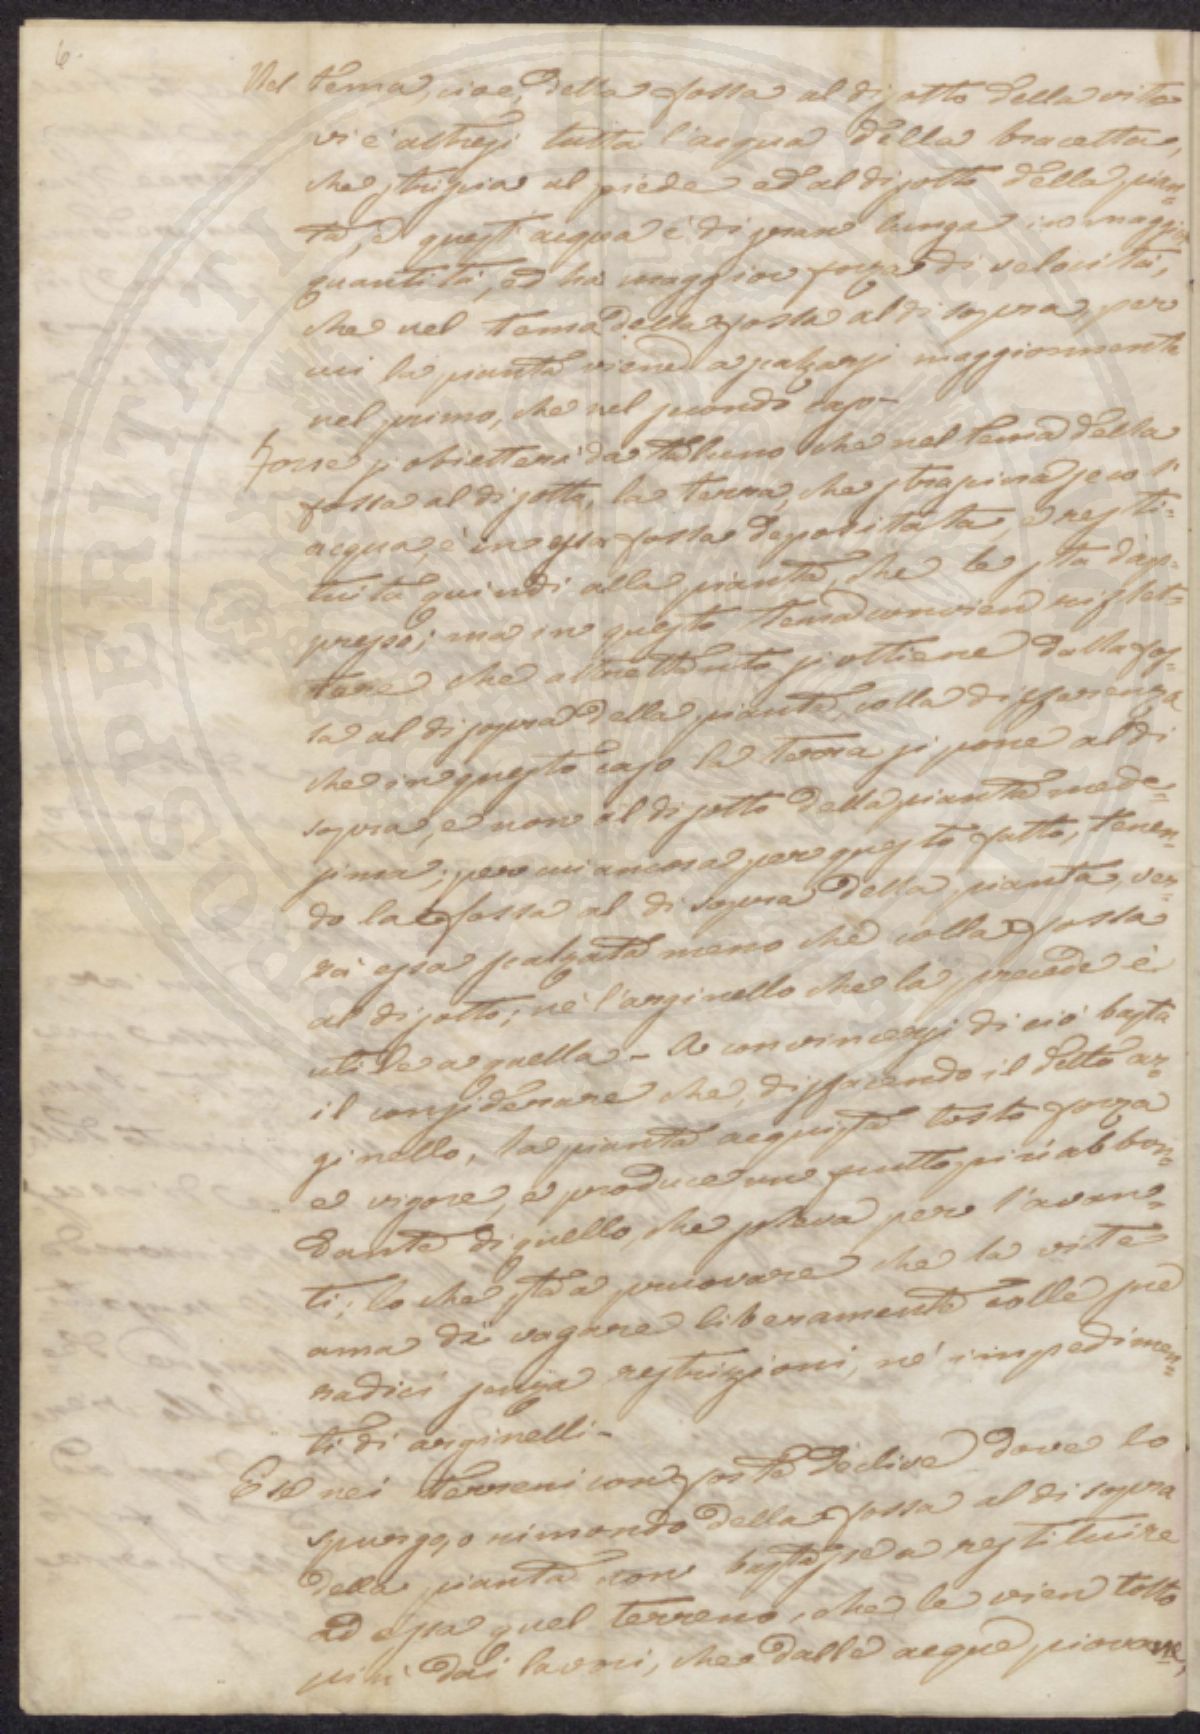 6.
Nel tema, cioè, della fossa al di sotto della vite
vi è altresì tutta l'acqua della bracetta,
che striscia al piede ed al di sotto della pian=
ta, e quest'acqua è di gran lunga in maggior
quantità, ed ha maggior forza di velocità,
che nel tema della fossa al di sopra, per
cui la pianta viene a scalzarsi maggiormente
nel primo, che nel secondo caso-
Forse si obietterà da taluno che nel tema della
fossa al di sotto, la terra, che strascina seco l'
acqua, è in essa fossa depositata, e resti=
tuita quindi alla pianta, che le sta dap=
presso; ma in questo tema convien riflet=
tere che altrettanto si ottiene dalla fos=
sa al di sopra della pianta, colla differenza
che in questo caso la terra si pone al di
sopra, e non al di sotto della pianta mede=
sima; per cui ancora per questo fatto, tenen=
do la fossa al di sopra della pianta, ver=
rà essa scalzata meno che colla fossa
al di sotto; nè l'arginello che la precede è
utile a quella - A convincersi di ciò basta
il considerare che, disfacendo il detto ar=
ginello, la pianta acquista tosto forza
e vigore, e produce un frutto più abbon=
dante di quello, che soleva per l'avan=
ti; lo che sta a pruovare che la vite
ama di vagare liberamente colle sue
radici senza restrizioni, nè impedimen=
ti di arginelli-
E se nei terreni con forte declive dove lo
spurgo rimondo della fossa al di sopra
della pianta non bastasse a restituire
ad essa quel terreno, che le vien tolto
più dai lavori, che dalle acque piovane,